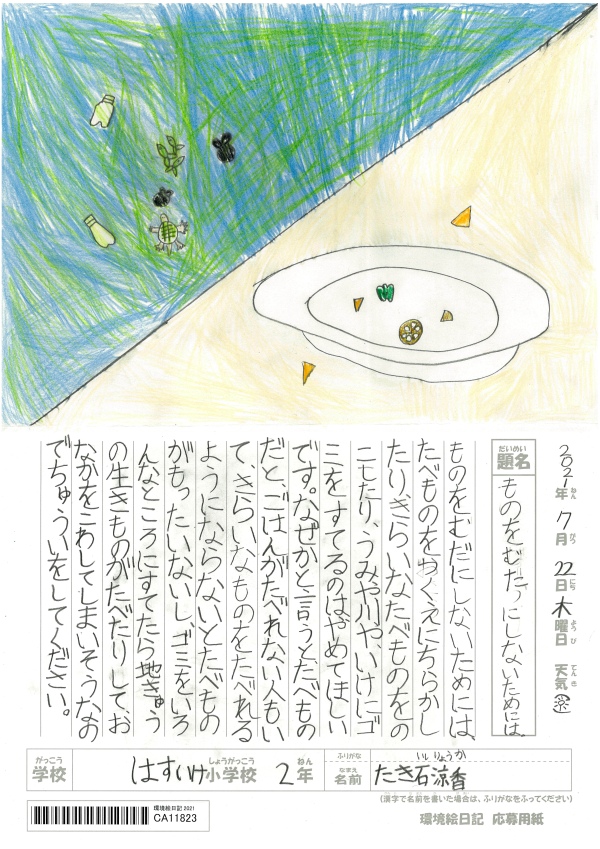 2021年ねん 7月がつ 22日にち 木曜日ようび 天気てんき
題名だいめい ものをむだにしないためには
ものをむだにしないためには、
たべものをつくえにちらかし
たり、きらいなたべものをの
こしたり、うみや川や、いけにゴ
ミをすてるのはやめてほしい
です。なぜかと言うとたべもの
だと、ごはんがたべれない人もい
て、きらいなものをたべれる
ようにならないとたべもの
がもったいないし、ゴミをいろ
んなところにすてたら地きゅう
の生きものがたべたりして、お
なかをこわしてしまいそうなの
でちゅういをしてください。
学校がっこう はすいけ小学校しょうがっこう 2年ねん
ふりがな いしりょうか
名前なまえ たき石涼香
(漢字で名前を書いた場合は、ふりがなをふってください)
環境絵日記 2021
CA11823
環境絵日記 応募用紙